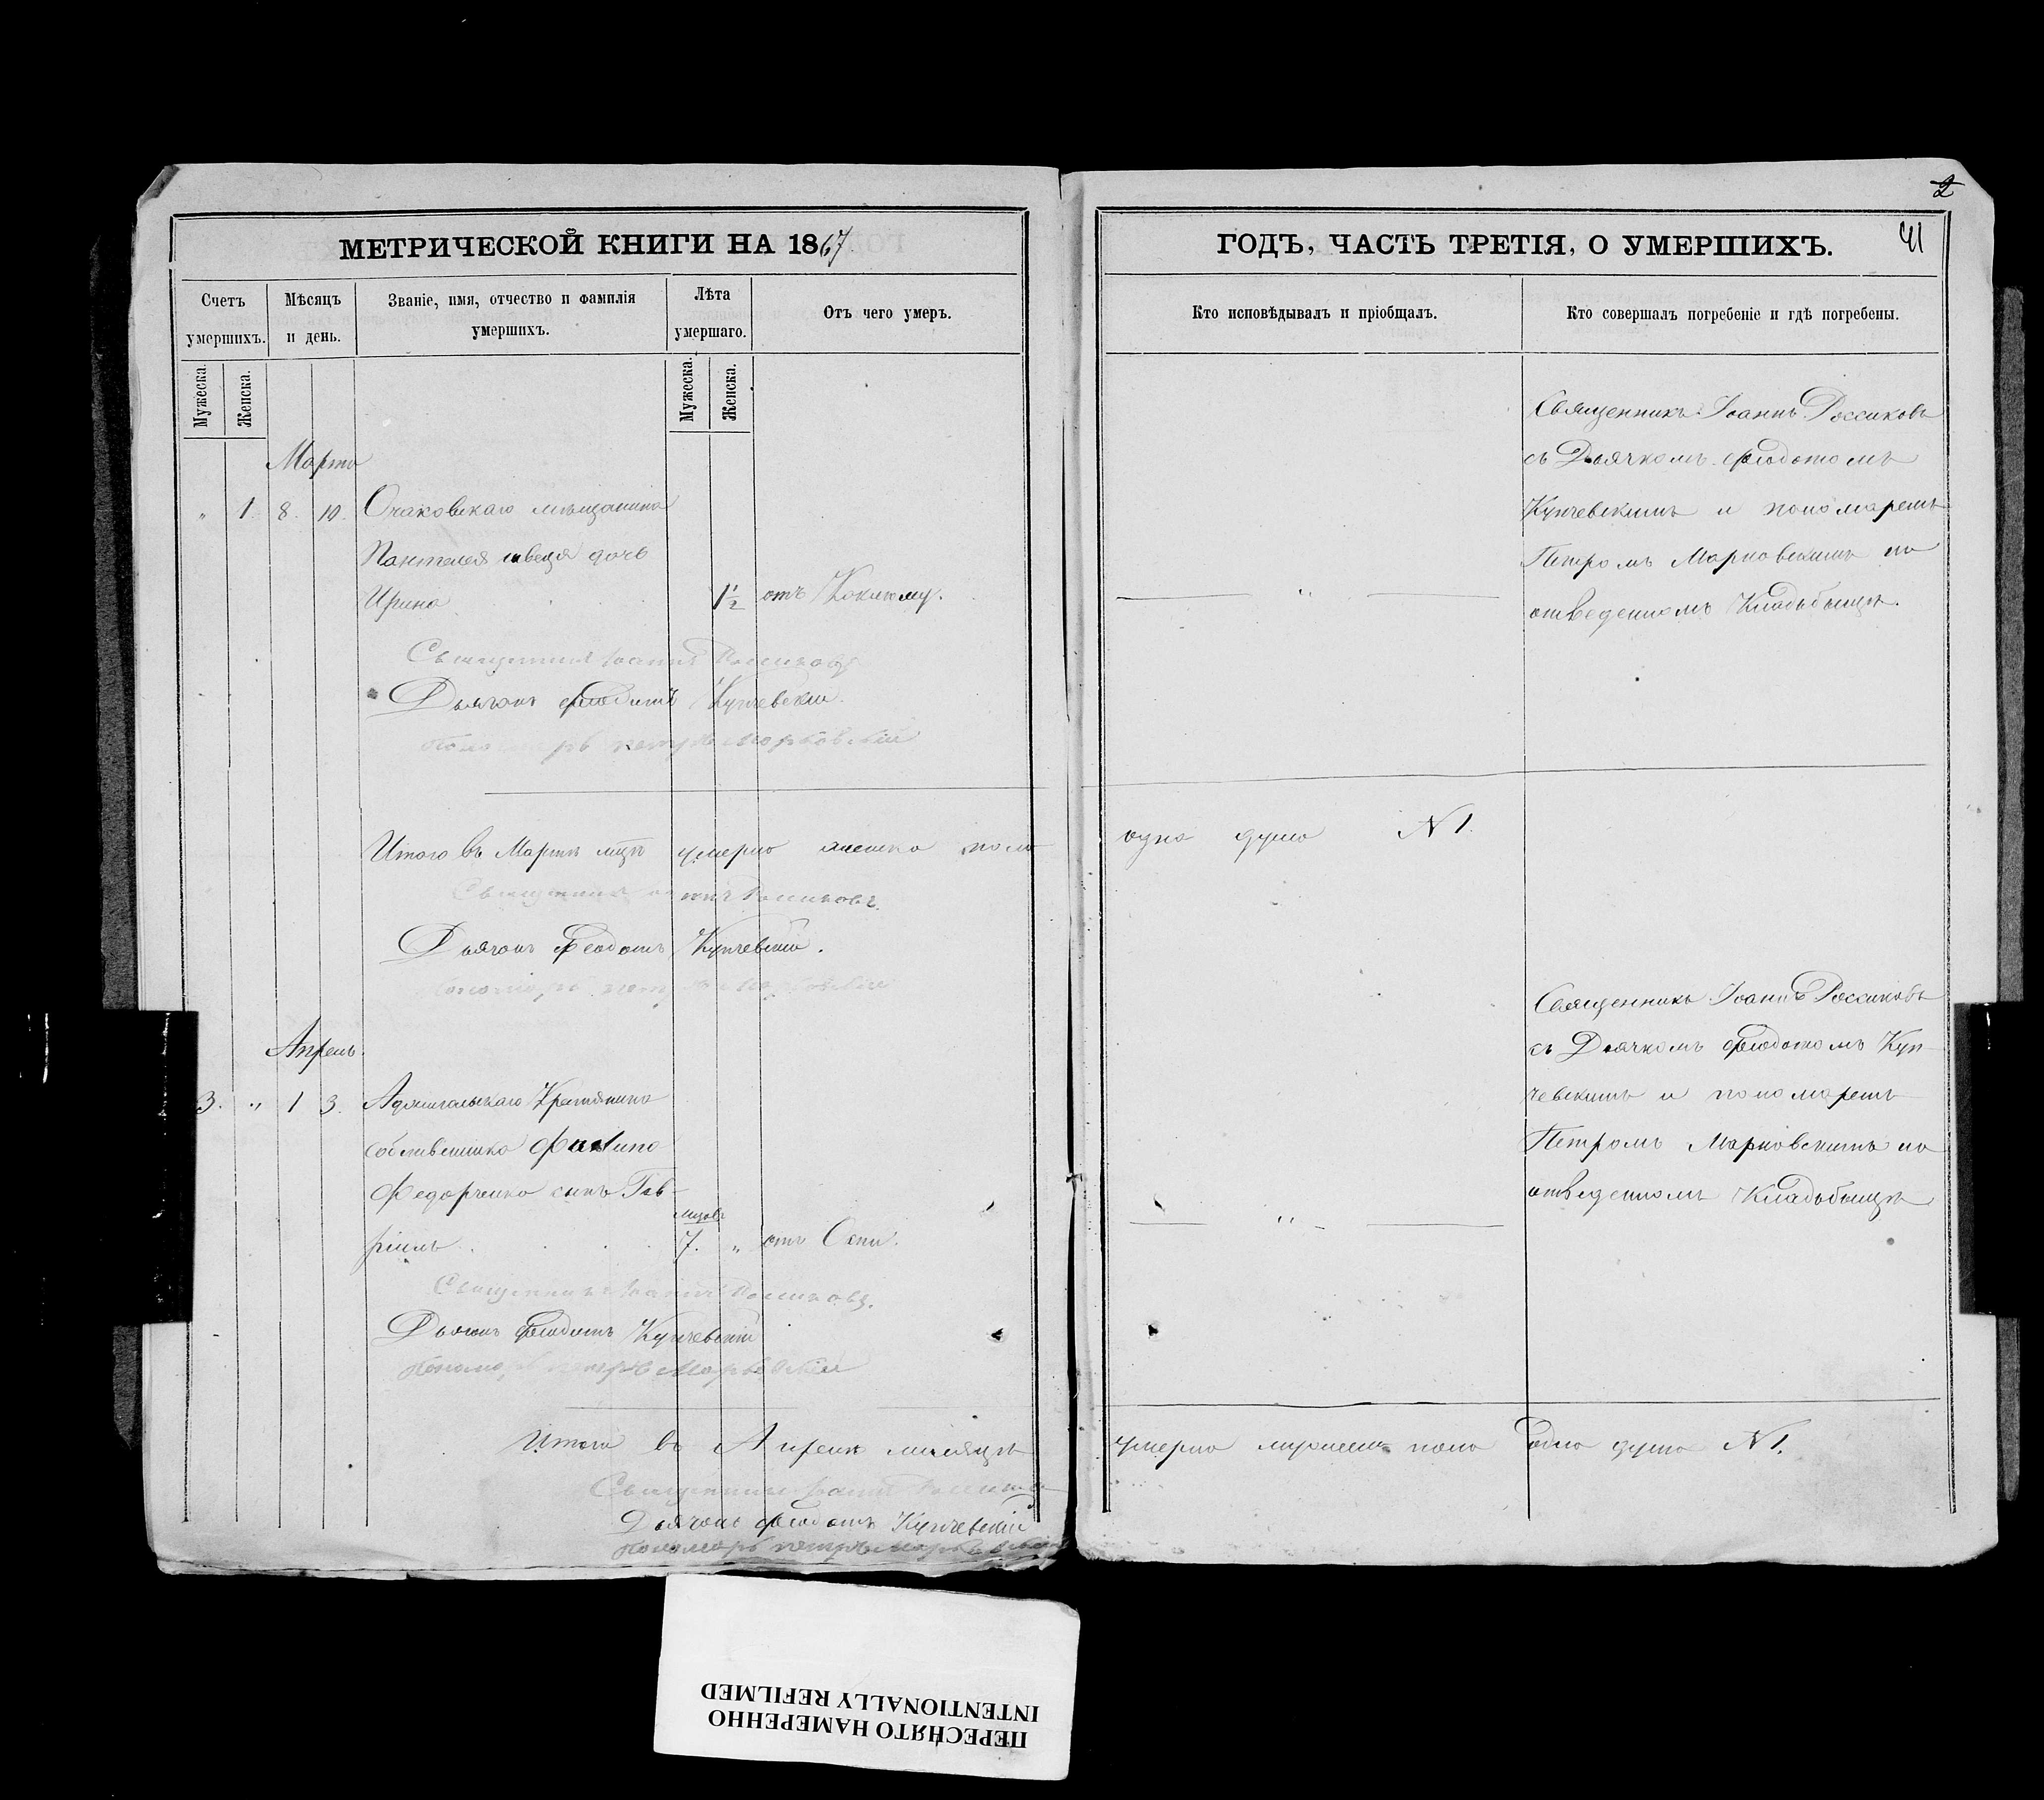 2
МЕТРИЧЕСКОЙ КНИГИ НА 1867
ГОДЪ, ЧАСТЬ ТРЕТІЯ, О УМЕРШИХЪ.
41
Счетъ умершихъ.
Мѣсяцъ и день.
Званіе, имя, отчество и фамилія умершихъ.
Лѣта умершаго.
Отъ чего умеръ.
Кто исповѣдывалъ и пріобщалъ.
Кто совершалъ погребеніе и гдѣ погребены.
Мужеска.
Женска.
Мужеска.
Женска.
Мартъ
" 1. 8. 10. Очаковскаго мѣщанина
Пантелея швеца дочь
Ирина 1½ отъ Коклюшу.
"
Священникъ Іоаннъ Россиковъ
съ Дьячкомъ Феодотомъ
Купчевскимъ и пономаремъ
Петромъ Марковскимъ на
отведенномъ Кладьбищѣ.
Священникъ Іоаннъ Россиковъ
Дьячокъ Феодотъ Купчевскій
Пономарь петръ Марковскій
Итого въ Мартѣ мцѣ умерло женска пола
одна душа N 1.
Священникъ Іоаннъ Россиковъ.
Дьячокъ Феодотъ Купчевскій.
Пономарь петръ Марковскій
Апрель
3. " 1 3. Крестянина
Филипа
Федорченка сынъ Гав-
ріилъ 7. " отъ Оспи.
"
Священникъ Іоаннъ Россиковъ
съ Дьячкомъ Феодотомъ Куп-
чевскимъ и пономаремъ
Петромъ Марковскимъ на
отведенномъ Кладьбищѣ
Священникъ Іоаннъ Россиковъ.
Дьячокъ Феодотъ Купчевскій
Пономарь петръ Марковскій
Итого въ Апрелѣ мѣсяцѣ
умерло мужеска пола одна душа N 1.
Священникъ Іоаннъ
Дьячокъ Феодотъ Купчевскій
Пономарь петръ Марковскій
ПЕРЕСНЯТО НАМЕРЕННО
INTENTIONALLY REFILMED